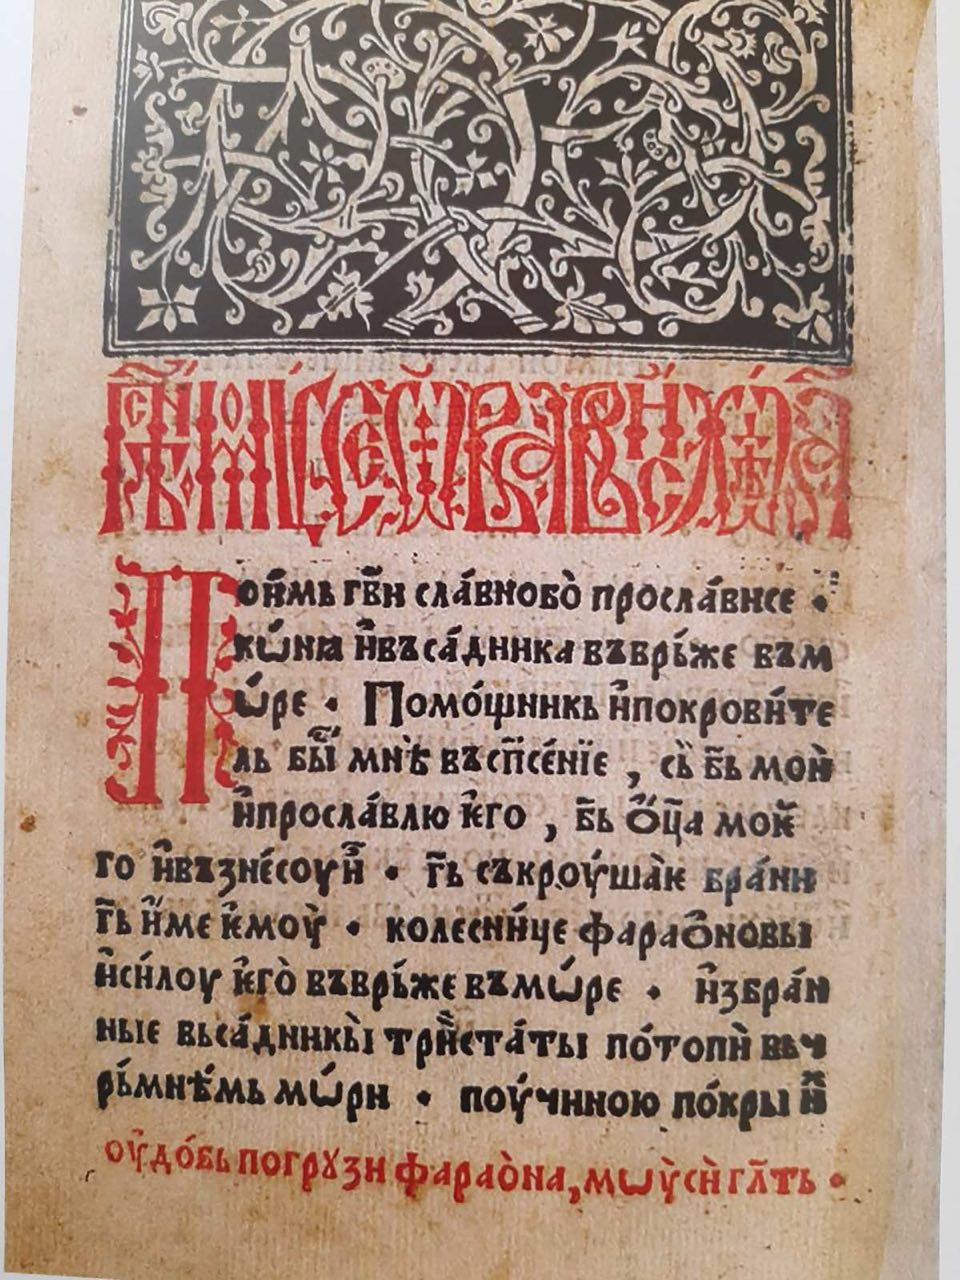 Пои́мь гв҃и сла́внобо̀ просла́висе ⁘
кѡ́ниꙗ и҆въса́дника въврь́же въм
ѡ́ре · Помо́щникь и҆покрови́те
ль бы́ⷭ҇ мнѣ̀ въсп҃се́нїе , сь̏ б҃ь мои҆
и҆просла́влю ѥ҆го , б҃ь ѻ҆ц҃а моѥ҆
го и҆възне́соуи҆ⷯ · г҃ь съкроу́шаѥ бра́ни
г҃ь и҆́ме ѥ҆моу̀ · колесни́це фараѻ҆новы
и҆си́лоу ѥ҆го̀ въврь́же въмѡ́ре · и҆збра́н
ныѥ вьса́дникы̀ три̏ста́ты по́топѝ вьч
рь́мнѣмь мѡ́ри · поу́чиною по́кры и҆ⷯ
оу҆до́бь погрꙋзи фараѻ̀на, мѡѵ̈сѝ гл҃ть ·